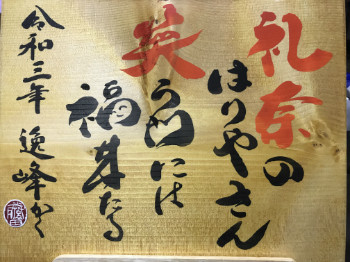 礼奈の
はりやさん
笑う門には
福来たる
令和三年 逸峰かく